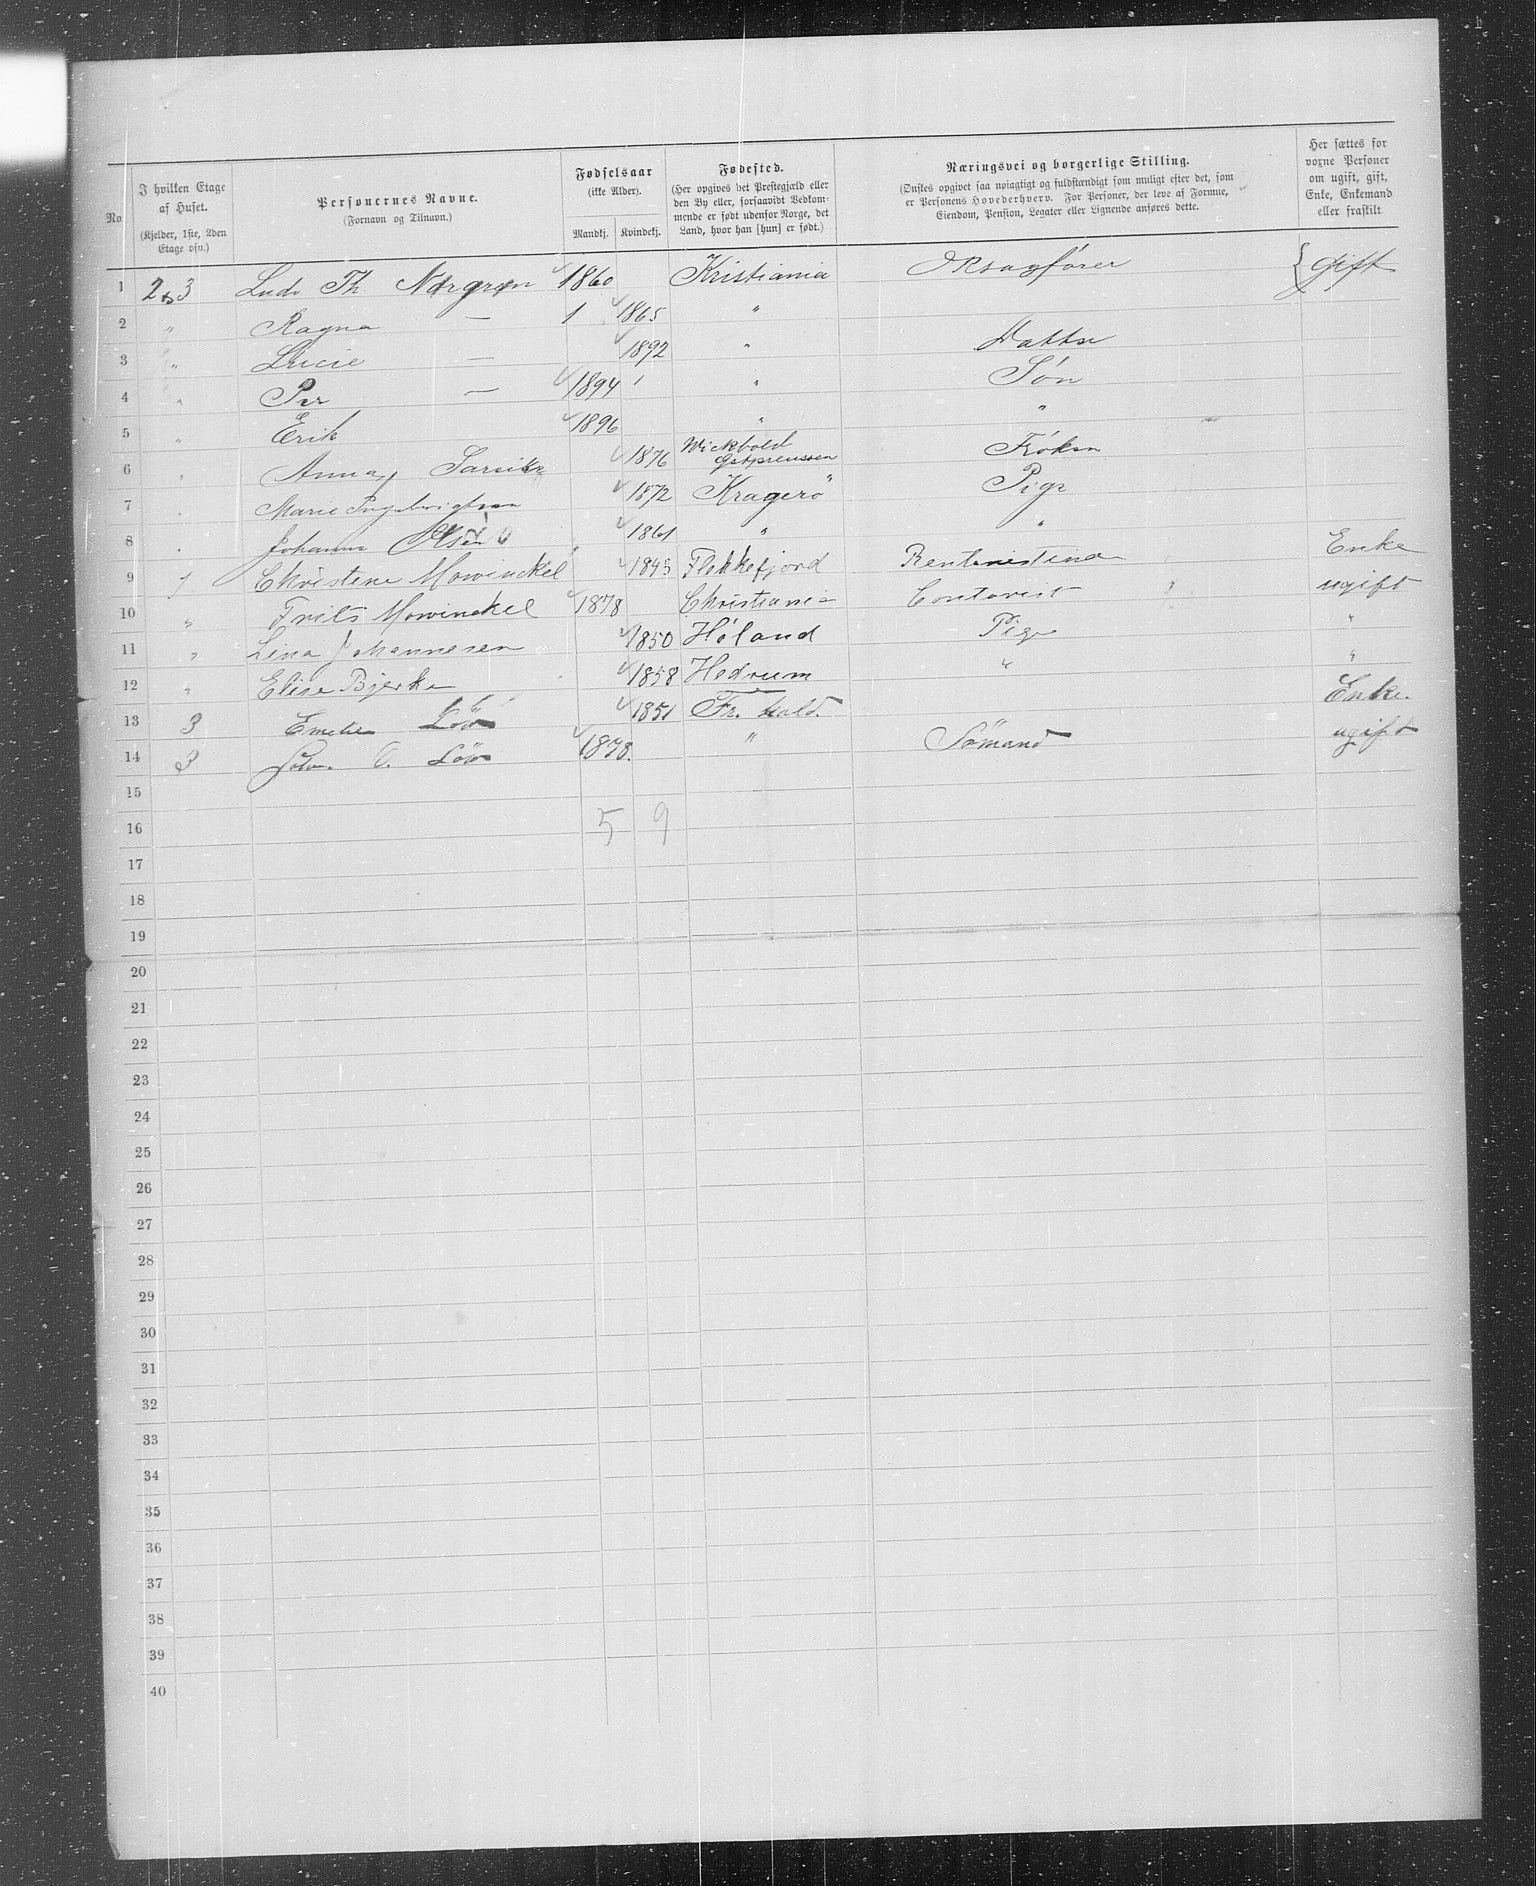 No. | I hvilken Etage af Huset. (Kjelder, 1ste, 2den Etage osv.) | Personernes Navne. (Fornavn og Tilnavn.) | Fødselsaar (ikke Alder). Mandkj. Kvindekj. | Fødested. (Her opgives det Prestegjæld eller den By eller, forsaavidt Vedkommende er født udenfor Norge, det Land, hvor han [hun] er født.) | Næringsvei og borgerlige Stilling. (Ønskes opgivet saa nøiagtigt og fuldstændigt som muligt efter det, som er Personens Hovederhverv. For Personer, der leve af Formue, Eiendom, Pension, Legater eller Lignende anføres dette.) | Her sættes for voxne Personer om ugift, gift, Enke, Enkemand eller fraskilt
1 2 3 Ludv Th. Nørgren 1860 Kristiania Oksagfører { gift
2 " Ragna — 1 1865 "
3 " Lucie — 1892 " Datter
4 " Per — 1894 " Søn
5 " Erik 1896 " "
6 " Anna 1876 Wickbold Ostpreussen Frøken
7 " Marie Ingebrigtsen 1872 Kragerö Pige
8 " Johanne Olsen 1861 " "
9 1 Christine Mowinckel 1845 Flekkefjord Rentenistinde Enke
10 " Frits Mowinckel 1878 Christiania Contorist ugift
11 " Lina Johannesen 1850 Høland Pige "
12 " Elise Bjerke 1858 Hedrum " "
13 3 Emelie Löv 1851 Fr. hald. Enke.
14 3 O. Löv 1878. " Sømand ugift
15
16 5 9
17
18
19
20
21
22
23
24
25
26
27
28
29
30
31
32
33
34
35
36
37
38
39
40